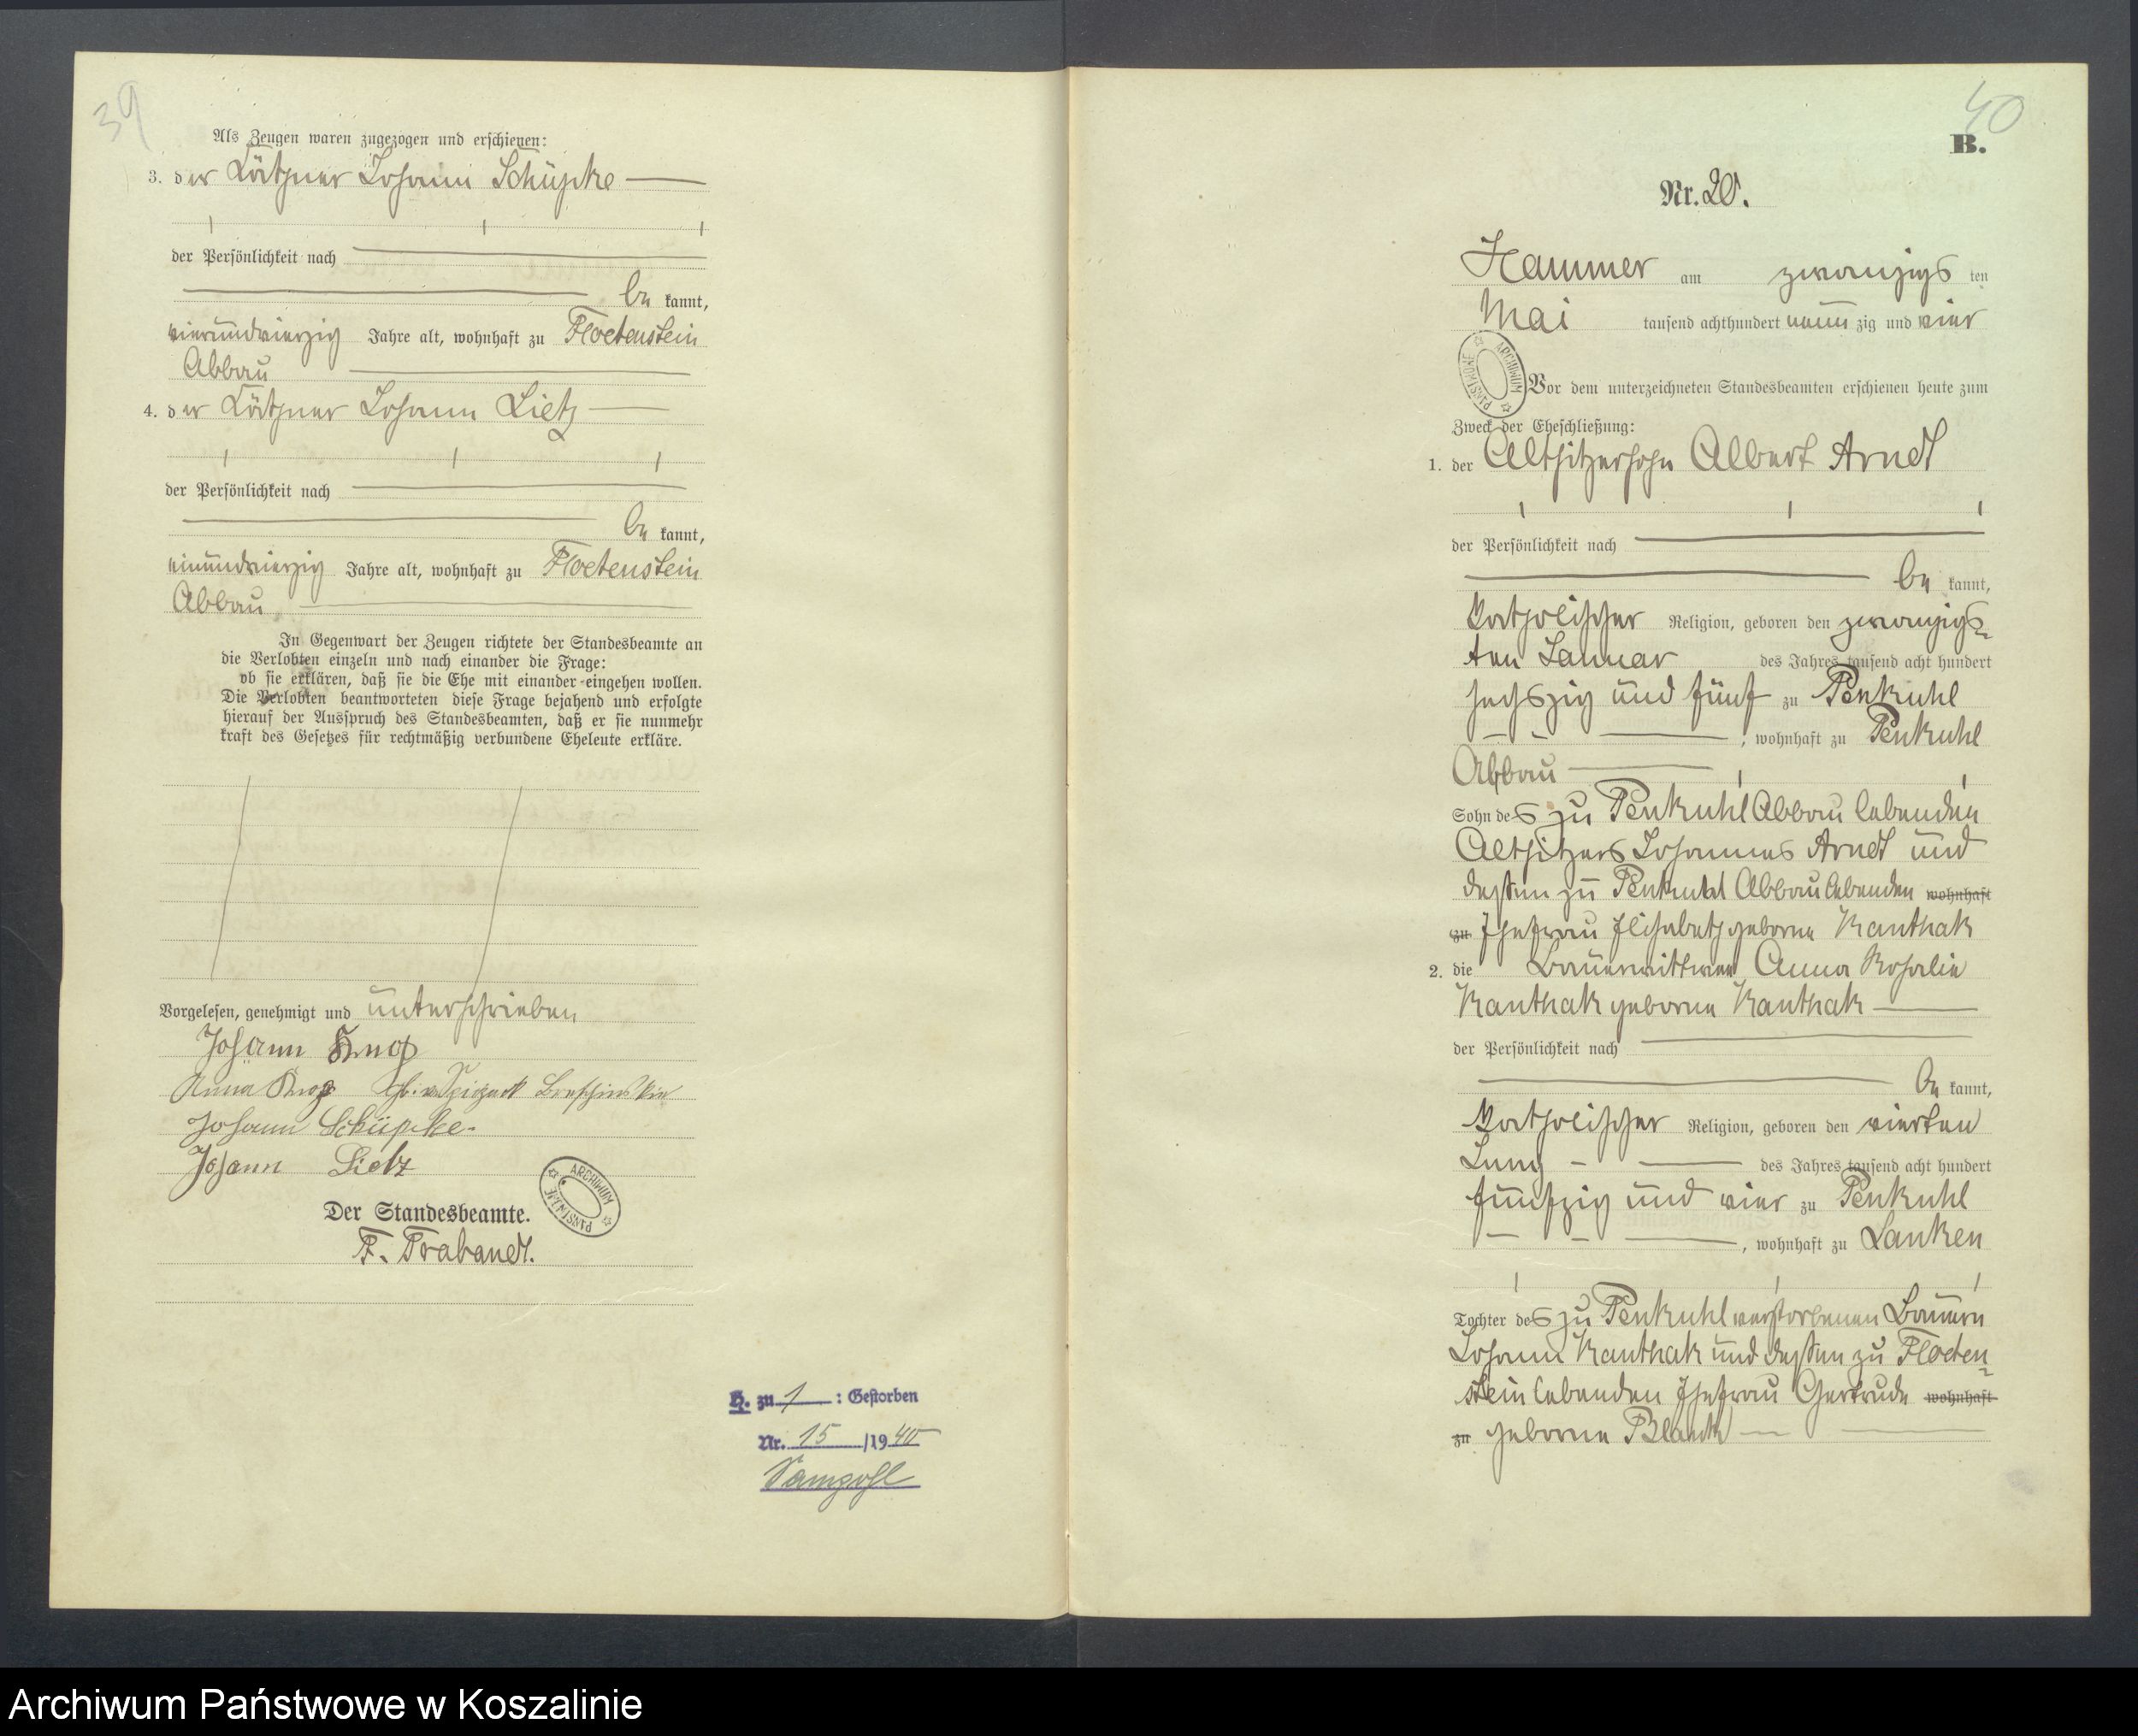 39
Als Zeugen waren zugezogen und erschienen:
3. der Käthner Johann Schüpke
der Persönlichkeit nach
be kannt,
vierundvierzig Jahre alt, wohnhaft zu Floetenstein
Abbau
4. der Käthner Johann Lietz
der Persönlichkeit nach
be kannt,
einundvierzig Jahre alt, wohnhaft zu Floetenstein
Abbau
In Gegenwart der Zeugen richtete der Standesbeamte an
die Verlobten einzeln und nach einander die Frage:
ob sie erklären, daß sie die Ehe mit einander eingehen wollen.
Die Verlobten beantworteten diese Frage bejahend und erfolgte
hierauf der Ausspruch des Standesbeamten, daß er sie nunmehr
kraft des Gesetzes für rechtmäßig verbundene Eheleute erkläre.
Vorgelesen, genehmigt und unterschrieben
Johann Knop
Anna Knop
Johann Schüpke.
Johann Lietz
Der Standesbeamte.
F. Trabandt.
ARCHIWUM PAŃSTWOWE
H. zu 1 : Gestorben
Nr. 15 /1940
40
B.
Nr. 20.
Hammer am zwanzigs ten
Mai tausend achthundert neun zig und vier
ARCHIWUM PAŃSTWOWE
Vor dem unterzeichneten Standesbeamten erschienen heute zum
Zweck der Eheschließung:
1. der Altsitzersohn Albert Arndt
der Persönlichkeit nach
be kannt,
katholischer Religion, geboren den zwanzigs-
ten Januar des Jahres tausend acht hundert
sechszig und fünf zu Penkuhl
, wohnhaft zu Penkuhl
Abbau
Sohn des zu Penkuhl Abbau lebenden
Altsitzers Johannes Arndt und
dessen zu Penkuhl Abbau lebenden wohnhaft
zu Ehefrau Elisabeth geborne Kanthak
2. die Bauerwittwe Anna Rosalie
Kanthak geborne Kanthak
der Persönlichkeit nach
be kannt,
katholischer Religion, geboren den vierten
Juny des Jahres tausend acht hundert
fünfzig und vier zu Penkuhl
, wohnhaft zu Lanken
Tochter des zu Penkuhl verstorbenen Bauern
Johann Kanthak und dessen zu Floeten-
stein lebenden Ehefrau Gertrude wohnhaft
zu geborne Blank
Archiwum Państwowe w Koszalinie